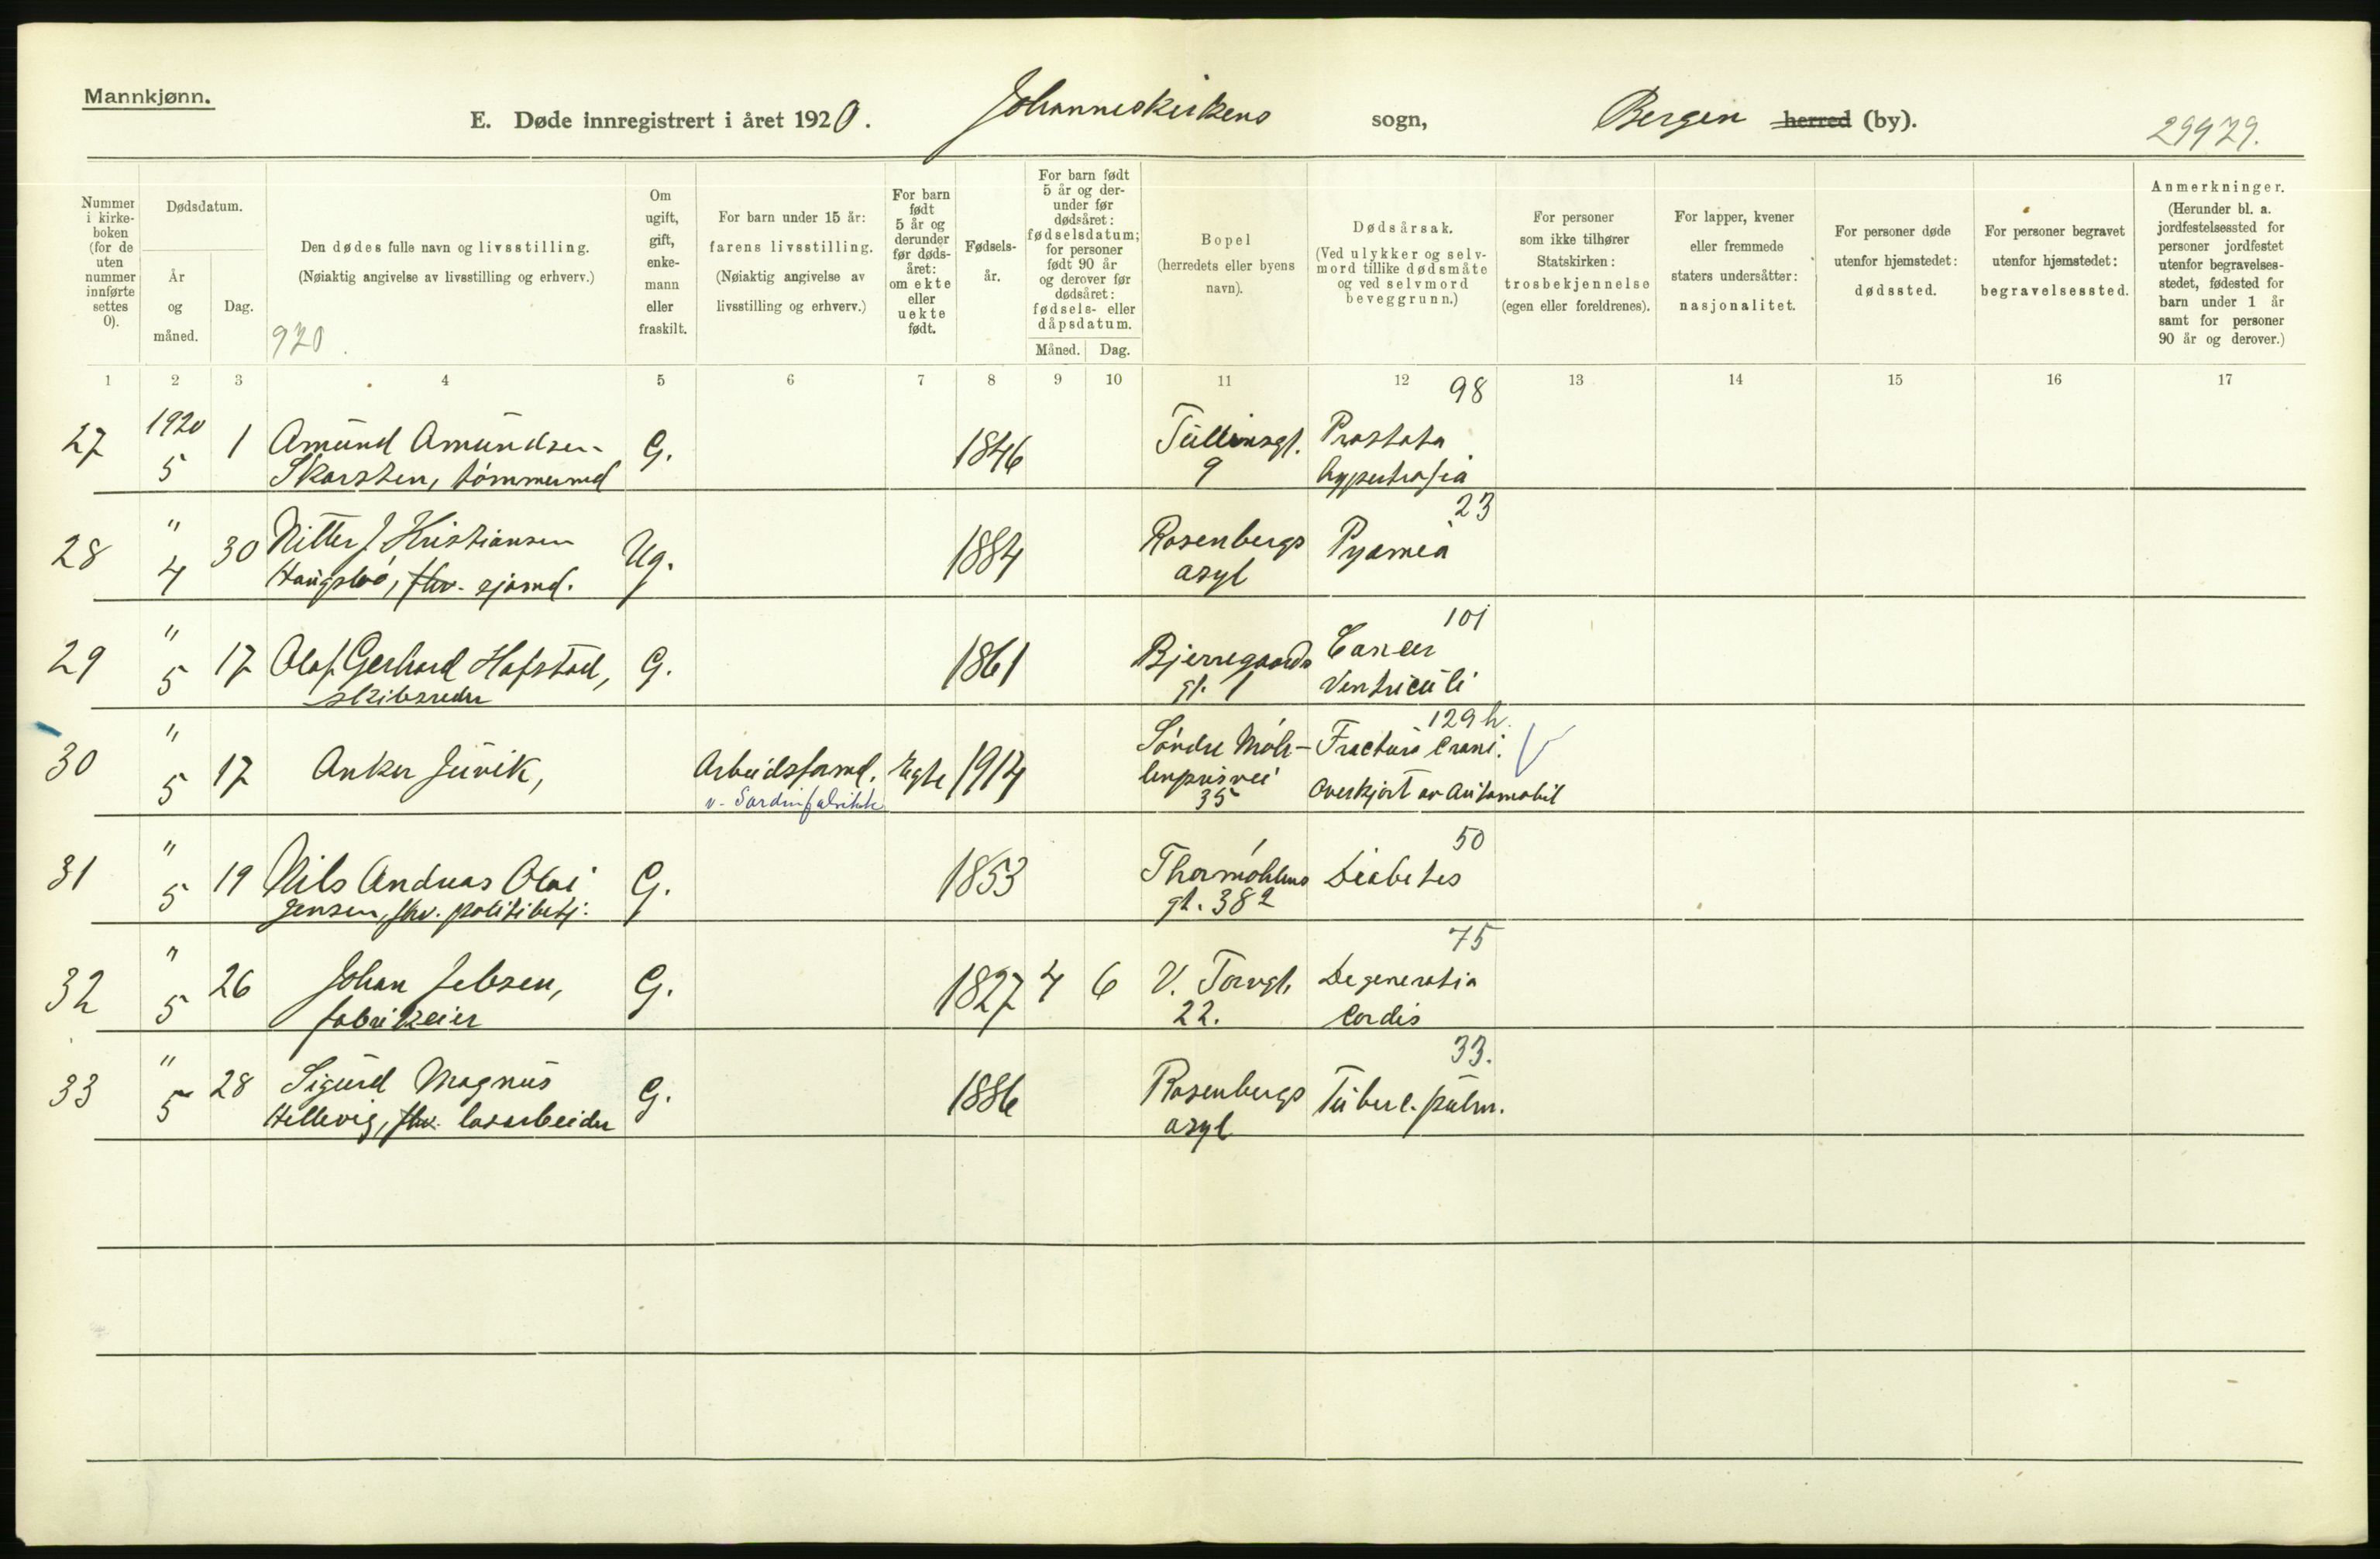 Mannkjønn.
E. Døde innregistrert i året 1920. Johanneskirkens sogn, Bergen herred (by). 29979.
Nummer i kirkeboken (for de uten nummer innførte settes 0).
Dødsdatum.
År og måned.
Dag.
Den dødes fulle navn og livsstilling.
(Nøiaktig angivelse av livsstilling og erhverv.)
920
Om ugift, gift, enkemann eller fraskilt.
For barn under 15 år: farens livsstilling.
(Nøiaktig angivelse av livsstilling og erhverv.)
For barn født 5 år og derunder før dødsåret: om ekte eller uekte født.
Fødselsår.
For barn født 5 år og derunder før dødsåret: fødselsdatum; for personer født 90 år og derover før dødsåret: fødsels- eller dåpsdatum.
Måned. Dag.
Bopel (herredets eller byens navn).
Dødsårsak.
(Ved ulykker og selvmord tillike dødsmåte og ved selvmord beveggrunn.)
For personer som ikke tilhører Statskirken: trosbekjennelse (egen eller foreldrenes).
For lapper, kvener eller fremmede staters undersåtter: nasjonalitet.
For personer døde utenfor hjemstedet: dødssted.
For personer begravet utenfor hjemstedet: begravelsessted.
Anmerkninger.
(Herunder bl. a. jordfestelsessted for personer jordfestet utenfor begravelsesstedet, fødested for barn under 1 år samt for personer 90 år og derover.)
1 2 3 4 5 6 7 8 9 10 11 12 13 14 15 16 17
98
27 1920 1 Amund Amundsen G. 1846 Tullinsgt. Prostata
5 Skarsten, tømmermd 9 hypertrofia
23
28 " 30 Nitter J Kristiansen Ug. 1884 Rosenbergs Pyæmia
4 Haugsbø, fhv. sjømd. asyl
101
29 " 17 Olaf Gerhard Hofstad, G. 1861 Bjerregaards Cancer
5 skibsreder gt. 1 Ventriculi
129 h.
30 " 17 Anker Juvik, Arbeidsformd. Egte 1914 Søndre Møh- Fractura Crani.
5 v. Sardinfabrikk lenprisvei 35 Overkjørt av Automobil
50
31 " 19 Nils Andreas Olai G. 1853 Thormøhlens Diabetes
5 Jensen, fhv. politibetj. gt. 38 2
75
32 " 26 Johan Jebsen, G. 1827 4 6 V. Torvgt. Degeneratia
5 fabrikeier 22. Cordis
33.
33 " 28 Sigurd Magnus G. 1886 Rosenbergs Tuberc. pulm.
5 Hellevig, fhv. løsarbeider asyl